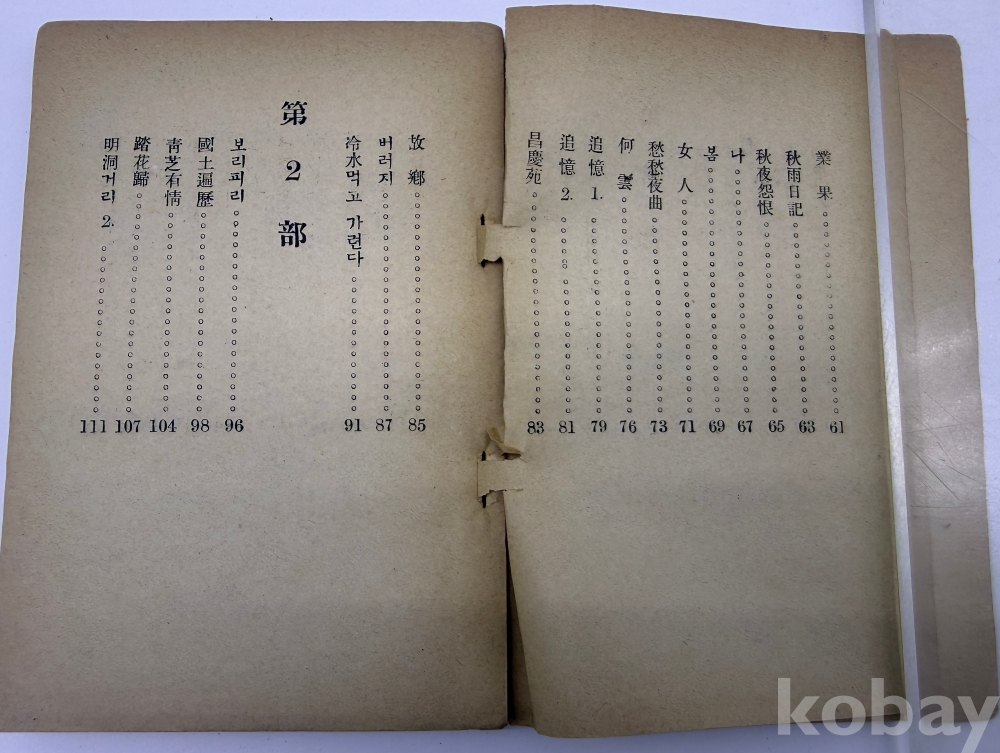 業果 61
秋雨日記 63
秋夜怨恨 65
나 67
봄 69
女人 71
愁愁夜曲 73
何雲 76
追憶 1. 79
追憶 2. 81
昌慶苑 83
故鄕 85
버러지 87
冷水먹고 가련다 91
第2部
보리피리 96
國土遍歷 98
靑芝有情 104
踏花歸 107
明洞거리 2. 111
kobay